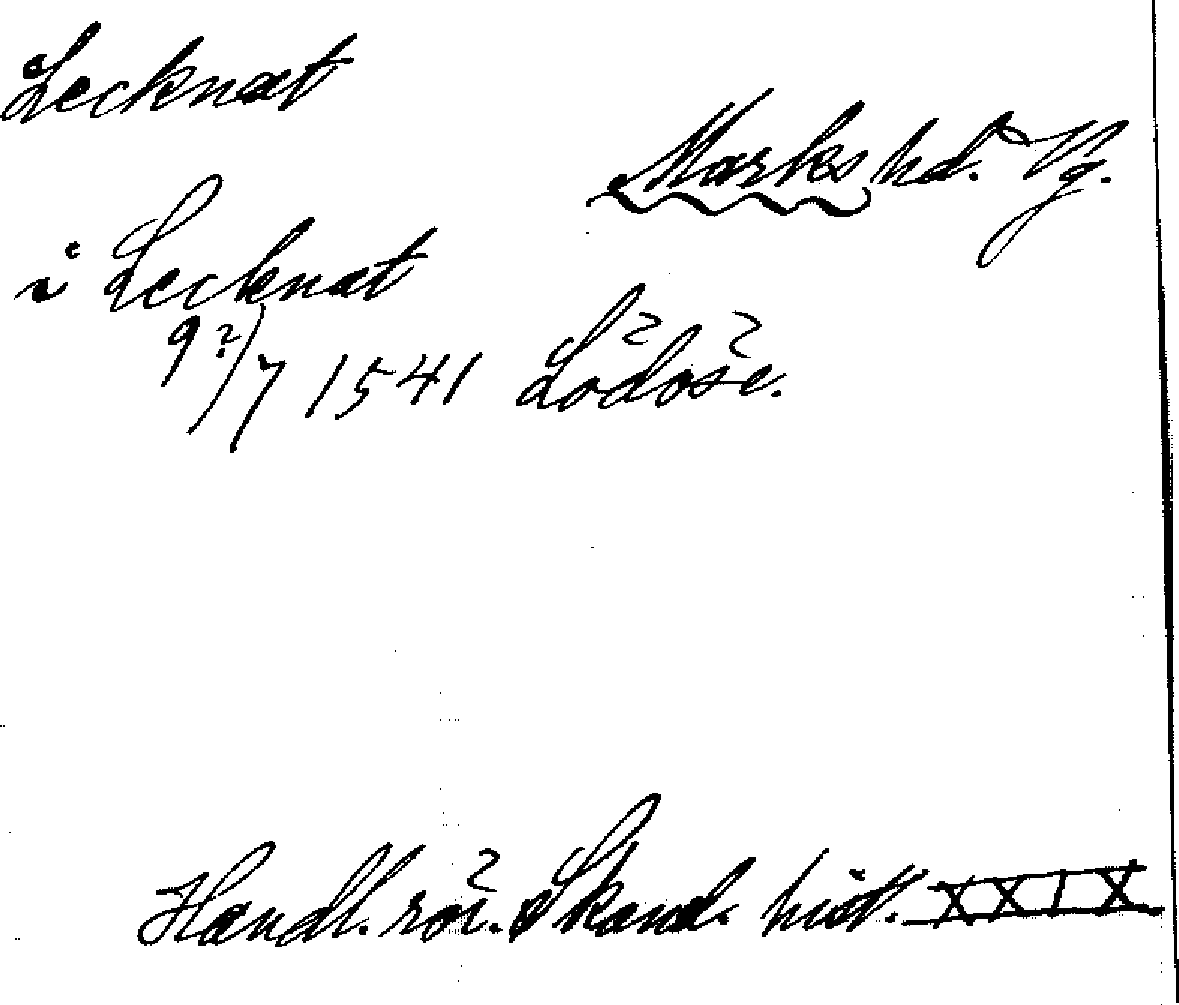 Lecknat
Marks hd. Vg.
i Lecknat
9?/7 1541 Lödöse.
Handl. rör. Skand. hist. XXIX